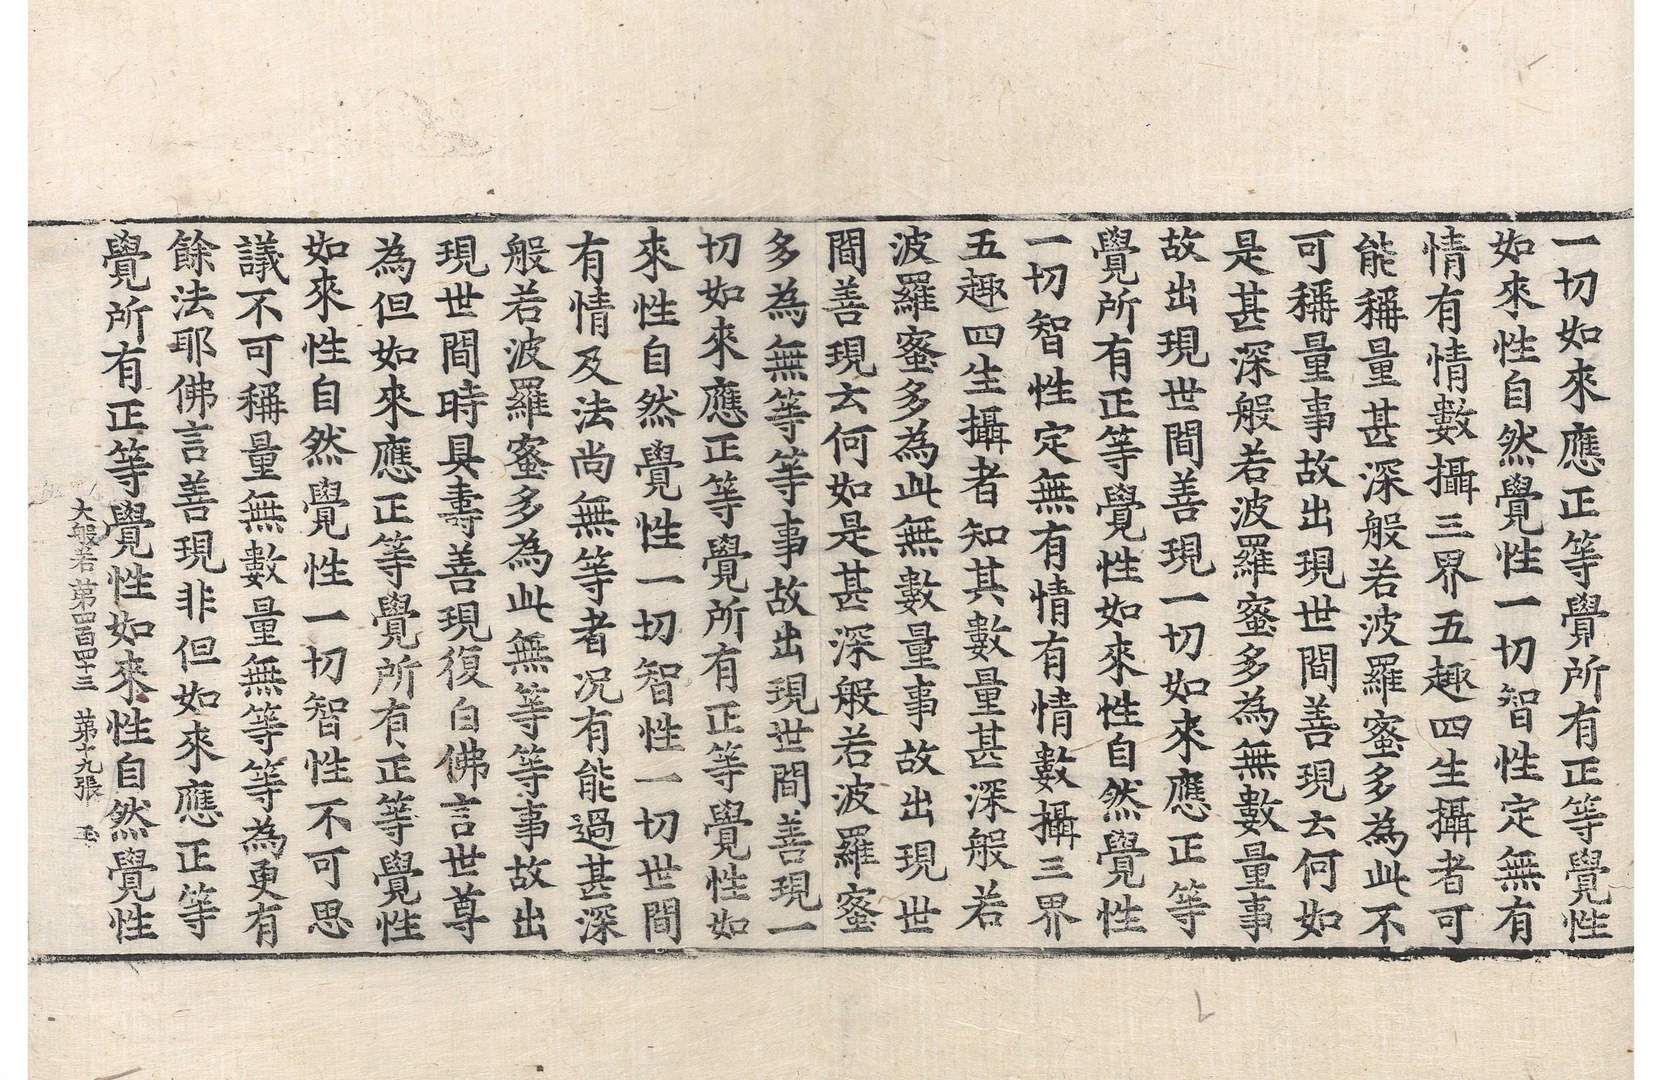 一切如來應正等覺所有正等覺性
如來性自然覺性一切智性定無有
情有情數攝三界五趣四生攝者可
能稱量甚深般若波羅蜜多為此不
可稱量事故出現世間善現云何如
是甚深般若波羅蜜多為無數量事
故出現世間善現一切如來應正等
覺所有正等覺性如來性自然覺性
一切智性定無有情有情數攝三界
五趣四生攝者知其數量甚深般若
波羅蜜多為此無數量事故出現世
間善現云何如是甚深般若波羅蜜
多為無等等事故出現世間善現一
切如來應正等覺所有正等覺性如
來性自然覺性一切智性一切世間
有情及法尚無等者况有能過甚深
般若波羅蜜多為此無等等事故出
現世間時具壽善現復白佛言世尊
為但如來應正等覺所有正等覺性
如來性自然覺性一切智性不可思
議不可稱量無數量無等等為更有
餘法耶佛言善現非但如來應正等
覺所有正等覺性如來性自然覺性
大般若第四百四十三 第十九張 玉